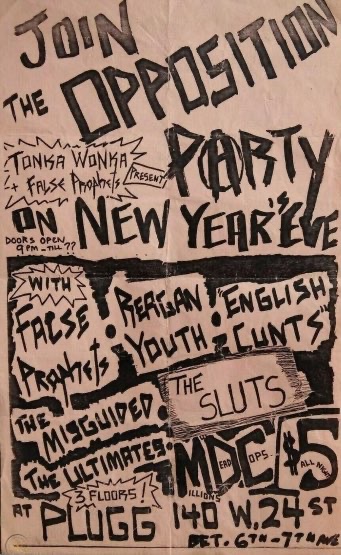 JOIN
THE OPPOSITION
TONKA WONKA
+ FALSE PROPHETS
PRESENT
PARTY
ON NEW YEAR'S EVE
DOORS OPEN
9PM - TILL ??
WITH
FALSE
PROPHETS
REAGAN
YOUTH
"ENGLISH
CUNTS"
THE
SLUTS
THE
MISGUIDED
THE ULTIMATES
MDC
MILLIONS
DEAD
COPS
$5
ALL NIGHT
3 FLOORS!
AT PLUGG
140 W. 24 ST
BET. 6TH-7TH AVE